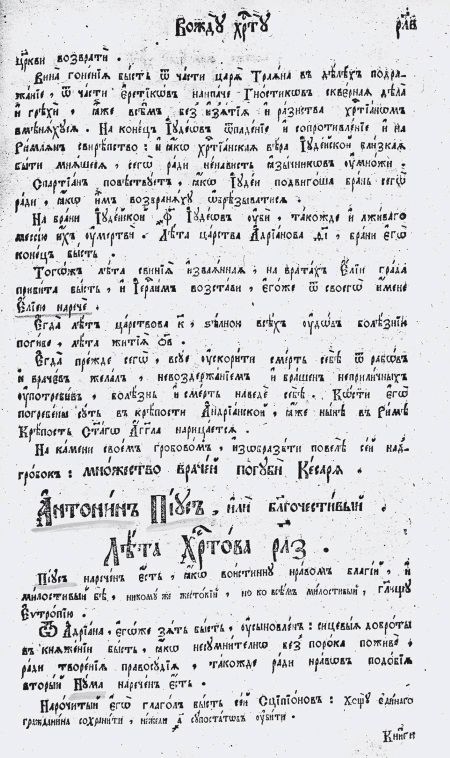 Вождѹ хрⷭ҇тѹ рл҃в
цр҃кви возврати .
Вина̀ гоненїѧ бысть ѿ части царѧ̀ Траѧ́на въ дѣлѣхъ подра-
жанїе , ѿ части є҆ретїкѡвъ наипаче Гностикѡвъ скверная дѣла
и҆ грѣхи , ꙗ҆же всѣмъ без̾ и҆зѧтїѧ и҆ разнства хрⷭ҇тїанѡмъ
вмѣнѧхусѧ . На конецъ Іѹдеѡвъ ѿпаденїе и҆ сопротивленїе и҆ на
Римлѧнъ свирѣпство : и҆ ꙗ҆кѡ хрⷭ҇тїанская вѣра Іѹдейской близкаѧ
быти мнѧшесѧ , сегѡ̀ ради ненависть ꙗ҆зычникѡвъ ѹ҆множи .
Спартїанъ повѣствуетъ , ꙗ҆кѡ Іѹдеи подвигоша брань сегѡ̀
ради , ꙗ҆кѡ и҆мъ возбранѧху ѡ҆брѣзыватисѧ .
На брани Іѹдейской Іѹдеѡвъ ѹ҆би , такожде и҆ лживаго
мессїю и҆хъ ѹ҆мертви . Лѣта царства А҆дрїанова , брани є҆гѡ̀
конецъ бысть .
Тогѡжъ лѣта свинїѧ и҆зваѧннаѧ , на вратахъ Е҆лїи града
прибита бысть , и҆ Іерⷭ҇лимъ возстави , є҆гоже ѿ своегѡ̀ и҆мене
Е҆лїею нарече .
Е҆гда лѣтъ царствова к҃ , ѕѣлною всѣхъ ѹ҆дѡвъ болѣзнїю
погибе , лѣта житїѧ ѻ҃в .
Е҆гда прежде сегѡ̀ , всуе ѹ҆скорити смерть себѣ ѿ рабѡвъ
и҆ врачевъ желалъ , невоздержанїемъ и҆ брашенъ неприличныхъ
ѹ҆потребивъ , болѣзнь и҆ смерть наведе себѣ . Кѡсти є҆гѡ̀
погребены суть въ крѣпости А҆ндрїанской , ꙗ҆же нынѣ въ Римѣ
Крѣпость Ст҃агѡ А҆́гг҃ла нарицаетсѧ .
На камени своемъ гробовомъ , и҆зѡбразѣти повелѣ сей над-
гробокъ : множество врачей погуби Кесарѧ .
А҆нтонинъ Пїусъ , и҆лѝ бл҃гочестивый .
Лѣта Хрⷭ҇това рл҃з .
Пїусъ нареченъ є҆сть , ꙗ҆кѡ воистинну нравомъ благїй , и҆
милостивый бѣ , никому же жестокїй , но ко всѣмъ милостивый , гл҃ющу
Е҆ѵтропїю .
Ѿ А҆дрїана , є҆гѡже зѧть бысть , ѹ҆сыновленъ : сицевыѧ доброты
въ кнѧженїи бысть , ꙗ҆кѡ несумнителнѡ без̾ порока пожива ,
ради творенїѧ правосудїѧ , такожде ради нравѡвъ подобїѧ
вторый Нума нареченъ є҆сть .
Нарочитый є҆гѡ̀ глаголъ бысть сей Сципїоновъ : Хощу є҆динаго
гражданина сохранити , нежели супостатѡвъ ѹ҆бити .
Книги